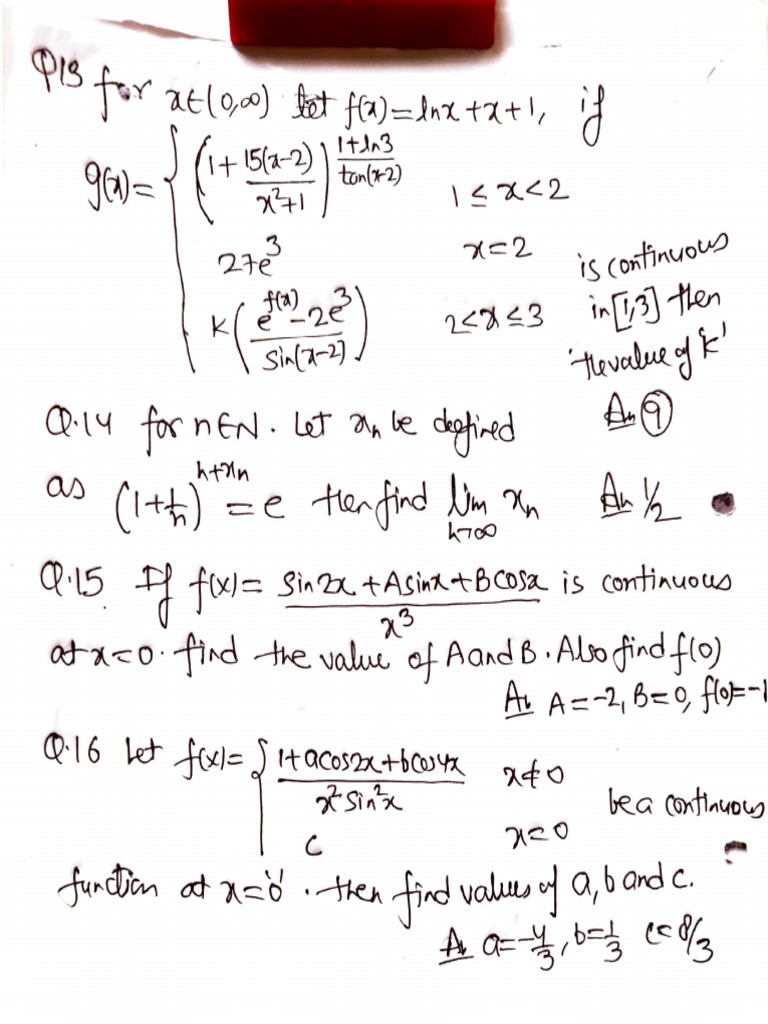 Q13 for x∈(0,∞) let f(x)=lnx+x+1, if
g(x)= { (1+ 15(x-2)/(x²+1))^((1+ln3)/tan(x-2))   1≤x<2
27e³   x=2
K( (e^(f(x)) -2e³)/sin(x-2) )   2<x≤3
is continuous
in [1,3] then
the value of 'k'
Q.14 for n∈N. Let xn be defined   An 9
as (1+1/n)^(n+xn) = e then find lim n→∞ xn   An 1/2
Q.15 If f(x)= (sin2x+Asinx+Bcosx)/x³ is continuous
at x=0. find the value of A and B. Also find f(0)
An A=-2, B=0, f(0)=-1
Q.16 Let f(x)= { (1+acos2x+bcos4x)/(x²sin²x)   x≠0
c   x=0
be a continuous
function at x='0'. then find values of a, b and c.
A a=-4/3, b=1/3 c=8/3